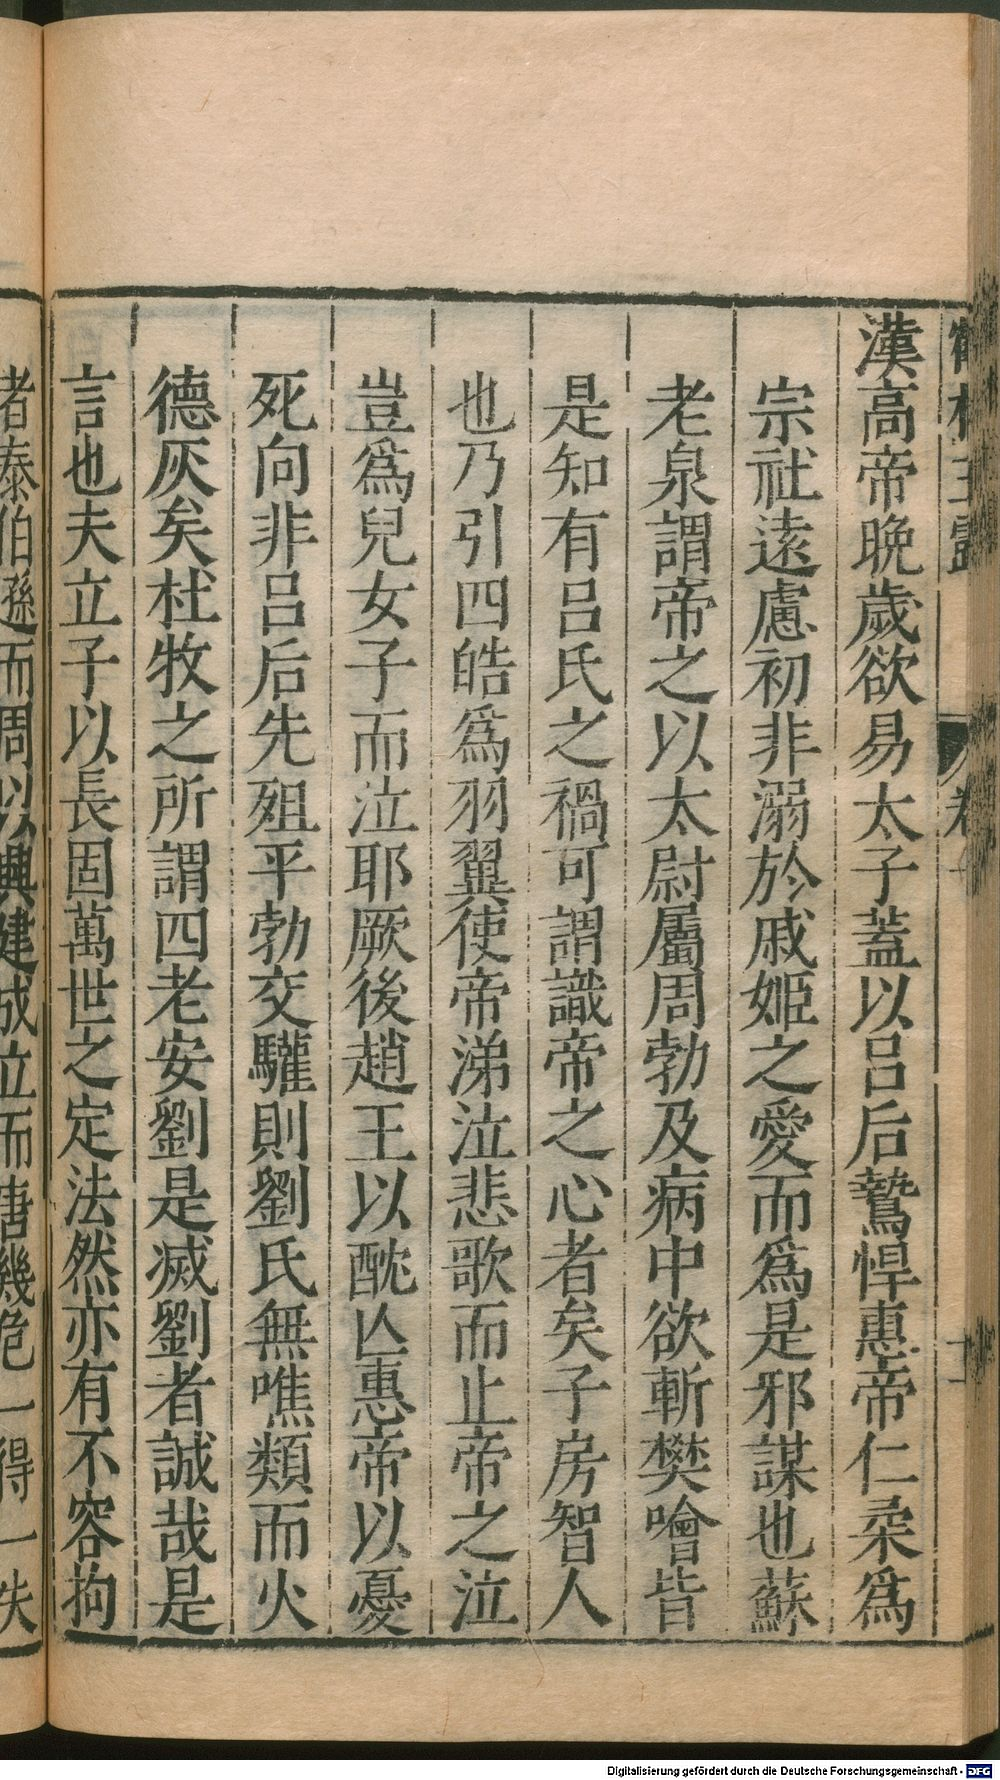 鶴林玉露
卷
十一
漢高帝晚歲欲易太子蓋以呂后鷙悍惠帝仁柔爲
宗社遠慮初非溺於戚姬之愛而爲是邪謀也蘇
老泉謂帝之以太尉屬周勃及病中欲斬樊噲皆
是知有呂氏之禍可謂識帝之心者矣子房智人
也乃引四皓爲羽翼使帝涕泣悲歌而止帝之泣
豈爲兒女子而泣耶厥後趙王以酖亾惠帝以憂
死向非呂后先殂平勃交驩則劉氏無噍類而火
德灰矣杜牧之所謂四老安劉是滅劉者誠哉是
言也夫立子以長固萬世之定法然亦有不容拘
者泰伯遜而周以興建成立而唐幾危一得一失
Digitalisierung gefördert durch die Deutsche Forschungsgemeinschaft - DFG